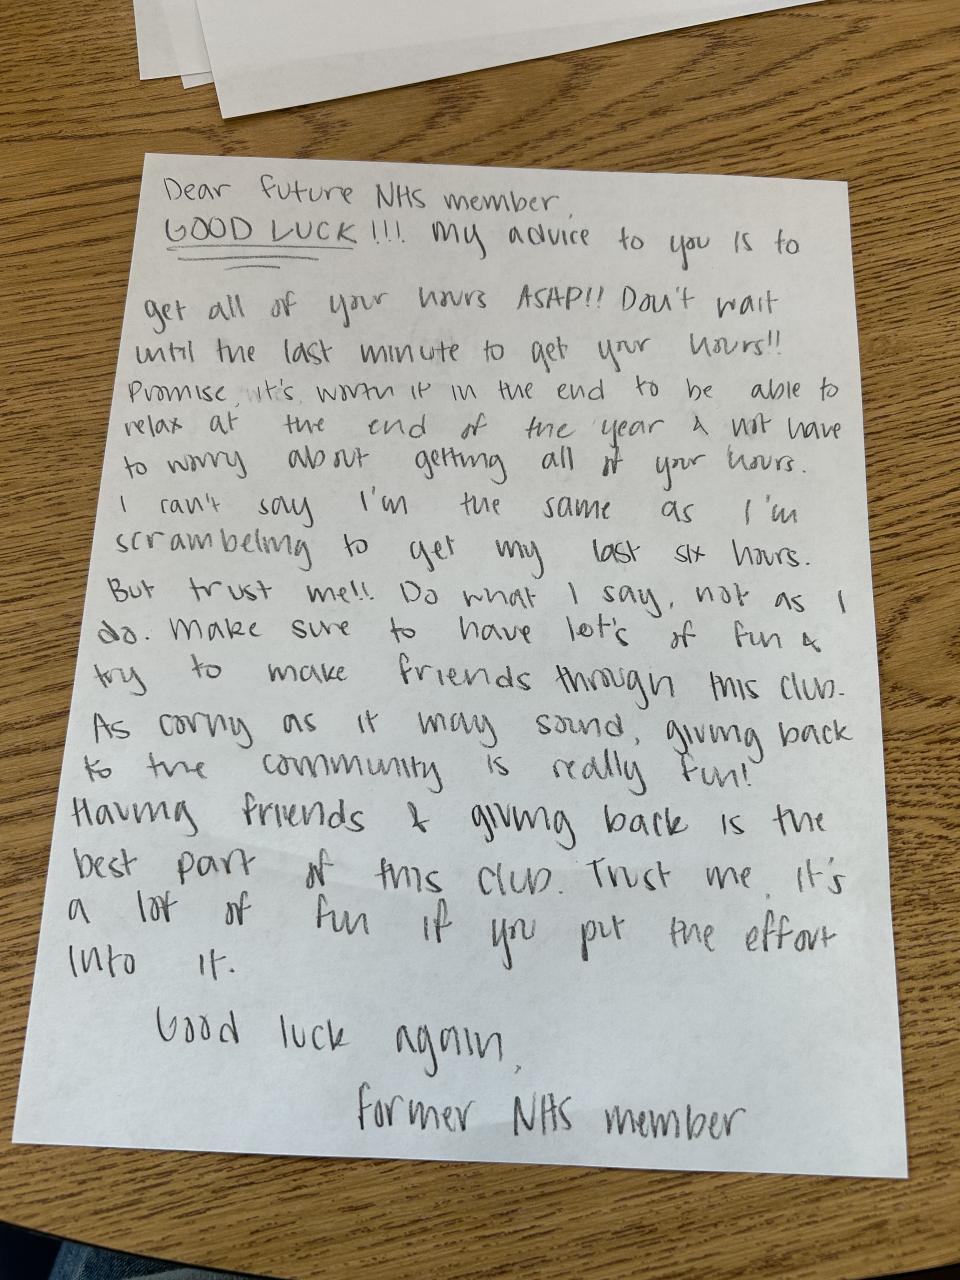 Dear future NHS member,
GOOD LUCK!!! My advice to you is to
get all of your hours ASAP!! Don't wait
until the last minute to get your hours!!
Promise, it's worth it in the end to be able to
relax at the end of the year & not have
to worry about getting all of your hours.
I can't say I'm the same as I'm
scrambeling to get my last six hours.
But trust me!! Do what I say, not as I
do. Make sure to have lot's of fun &
try to make friends through this club.
As corny as it may sound, giving back
to the community is really fun!
Having friends & giving back is the
best part of this club. Trust me, it's
a lot of fun if you put the effort
into it.
Good luck again,
Former NHS member